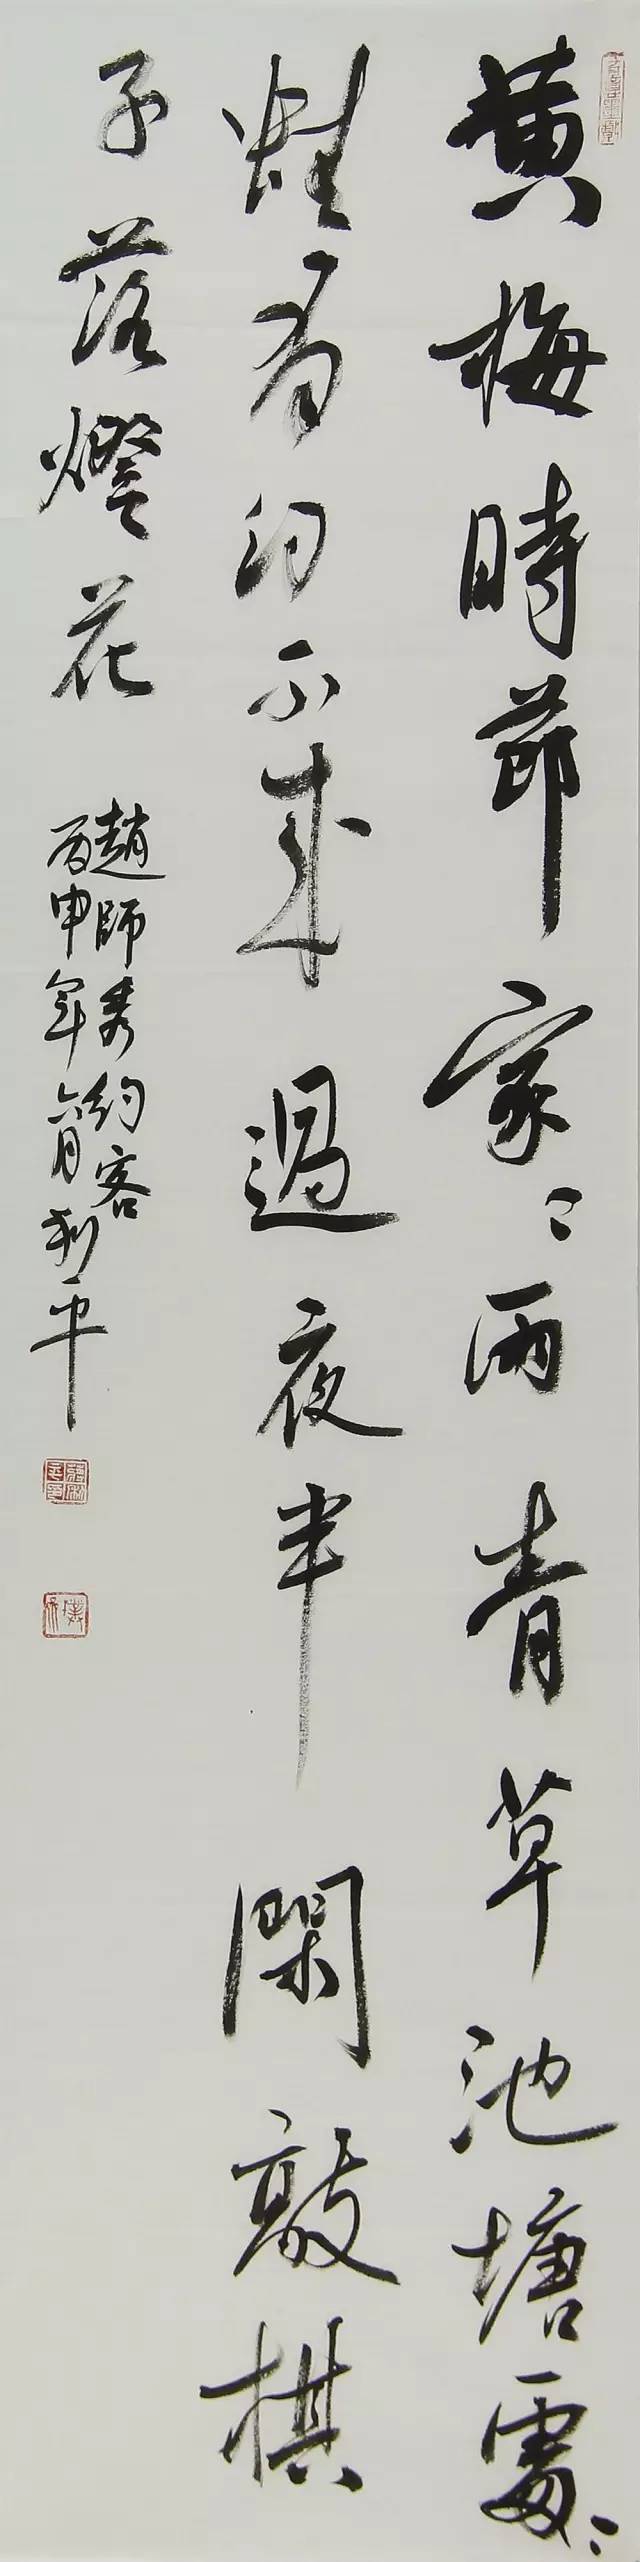 黄梅時節家〻雨青草池塘處〻
蛙有約不来過夜半閑敲棋
子落燈花
趙師秀約客
丙申年六月利平